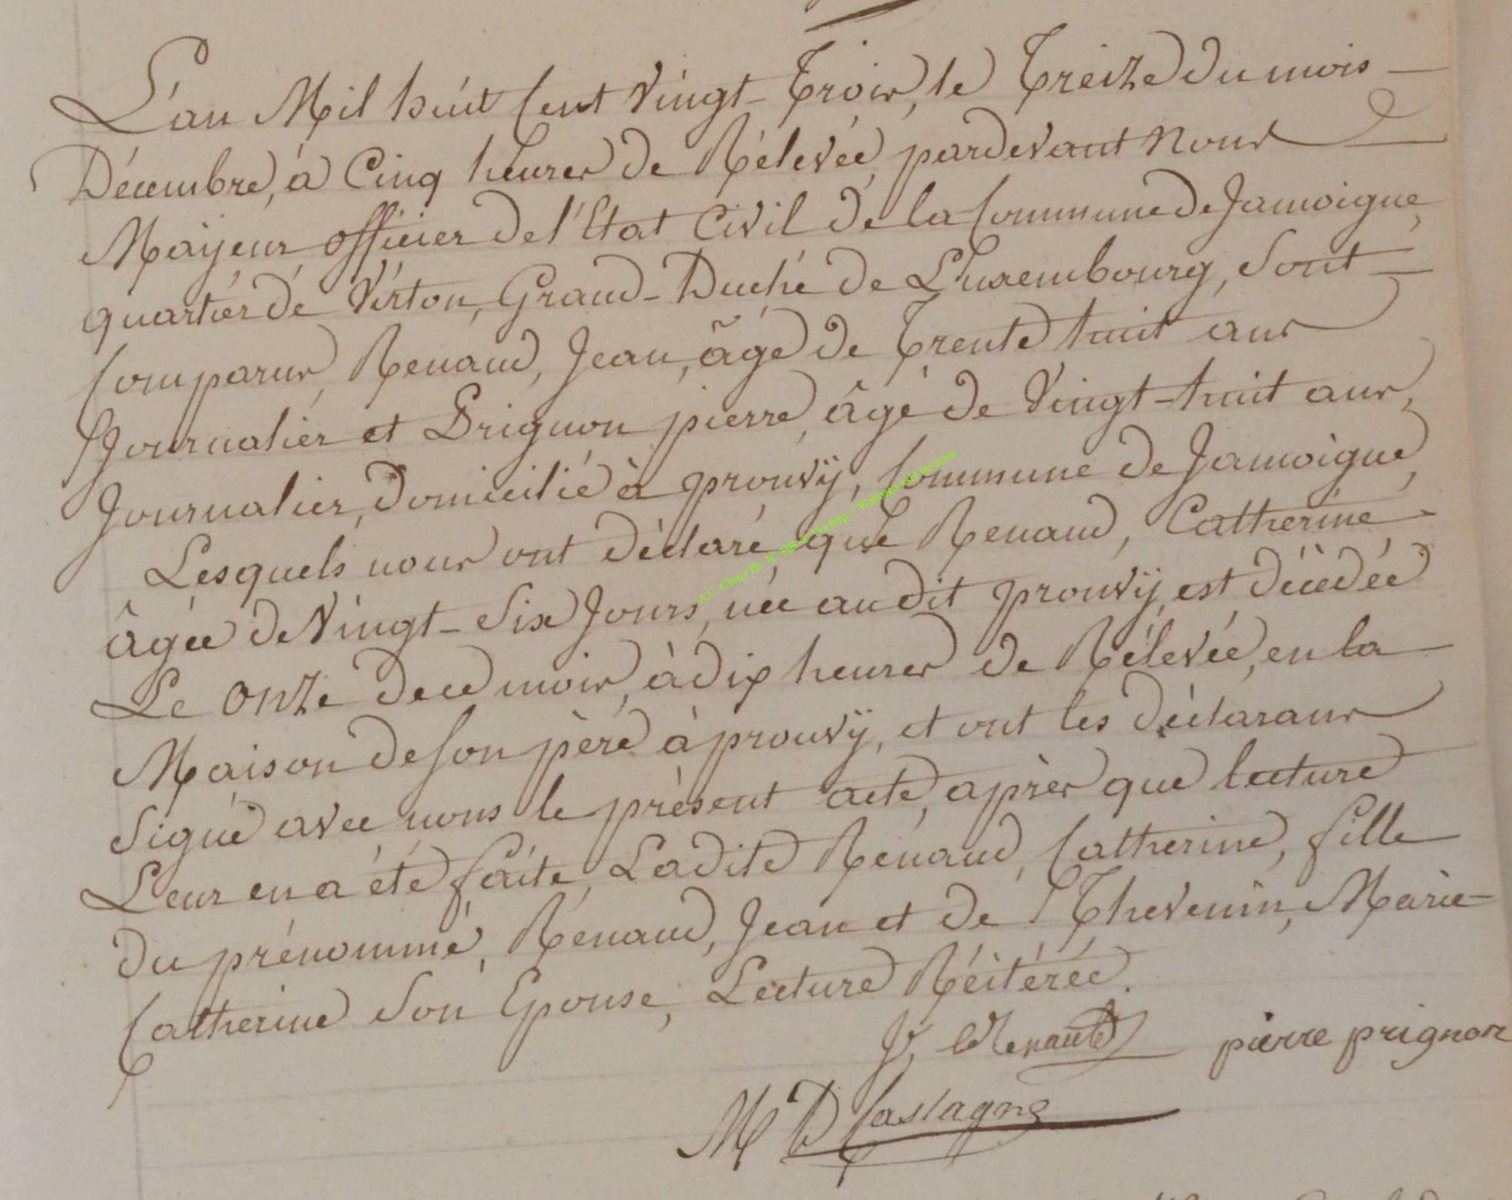 L'an Mil huit Cent Vingt-Trois, le Treize du mois
Décembre, à Cinq heures de Rélevée, pardevant Nous
Maÿeur officier de l'Etat Civil de la Commune de Jamoigne,
quartier de Virton, Grand-Duché de Luxembourg, Sont
Comparus, Renaud, Jean, âgé de Trente huit ans
Journalier et Prignon pierre, âgé de Vingt-huit ans,
Journalier, domicilié à prouvÿ, Commune de Jamoigne,
Lesquels nous ont déclaré que Renaud, Catherine
âgée de Vingt-Six Jours, née au dit prouvÿ, est décédée
Le Onze de ce mois, à dix heures de Rélevée, en la
Maison de Son père à prouvÿ, et ont les déclarans
Signé avec nous le présent acte, après que lecture
Leur en a été faite, Ladite Renaud, Catherine, fille
du prénommé, Renaud, Jean et de Thevenin, Marie-
Catherine Son Epouse, Lecture Réitérée.
Renauld pierre prignon
M D Castagne